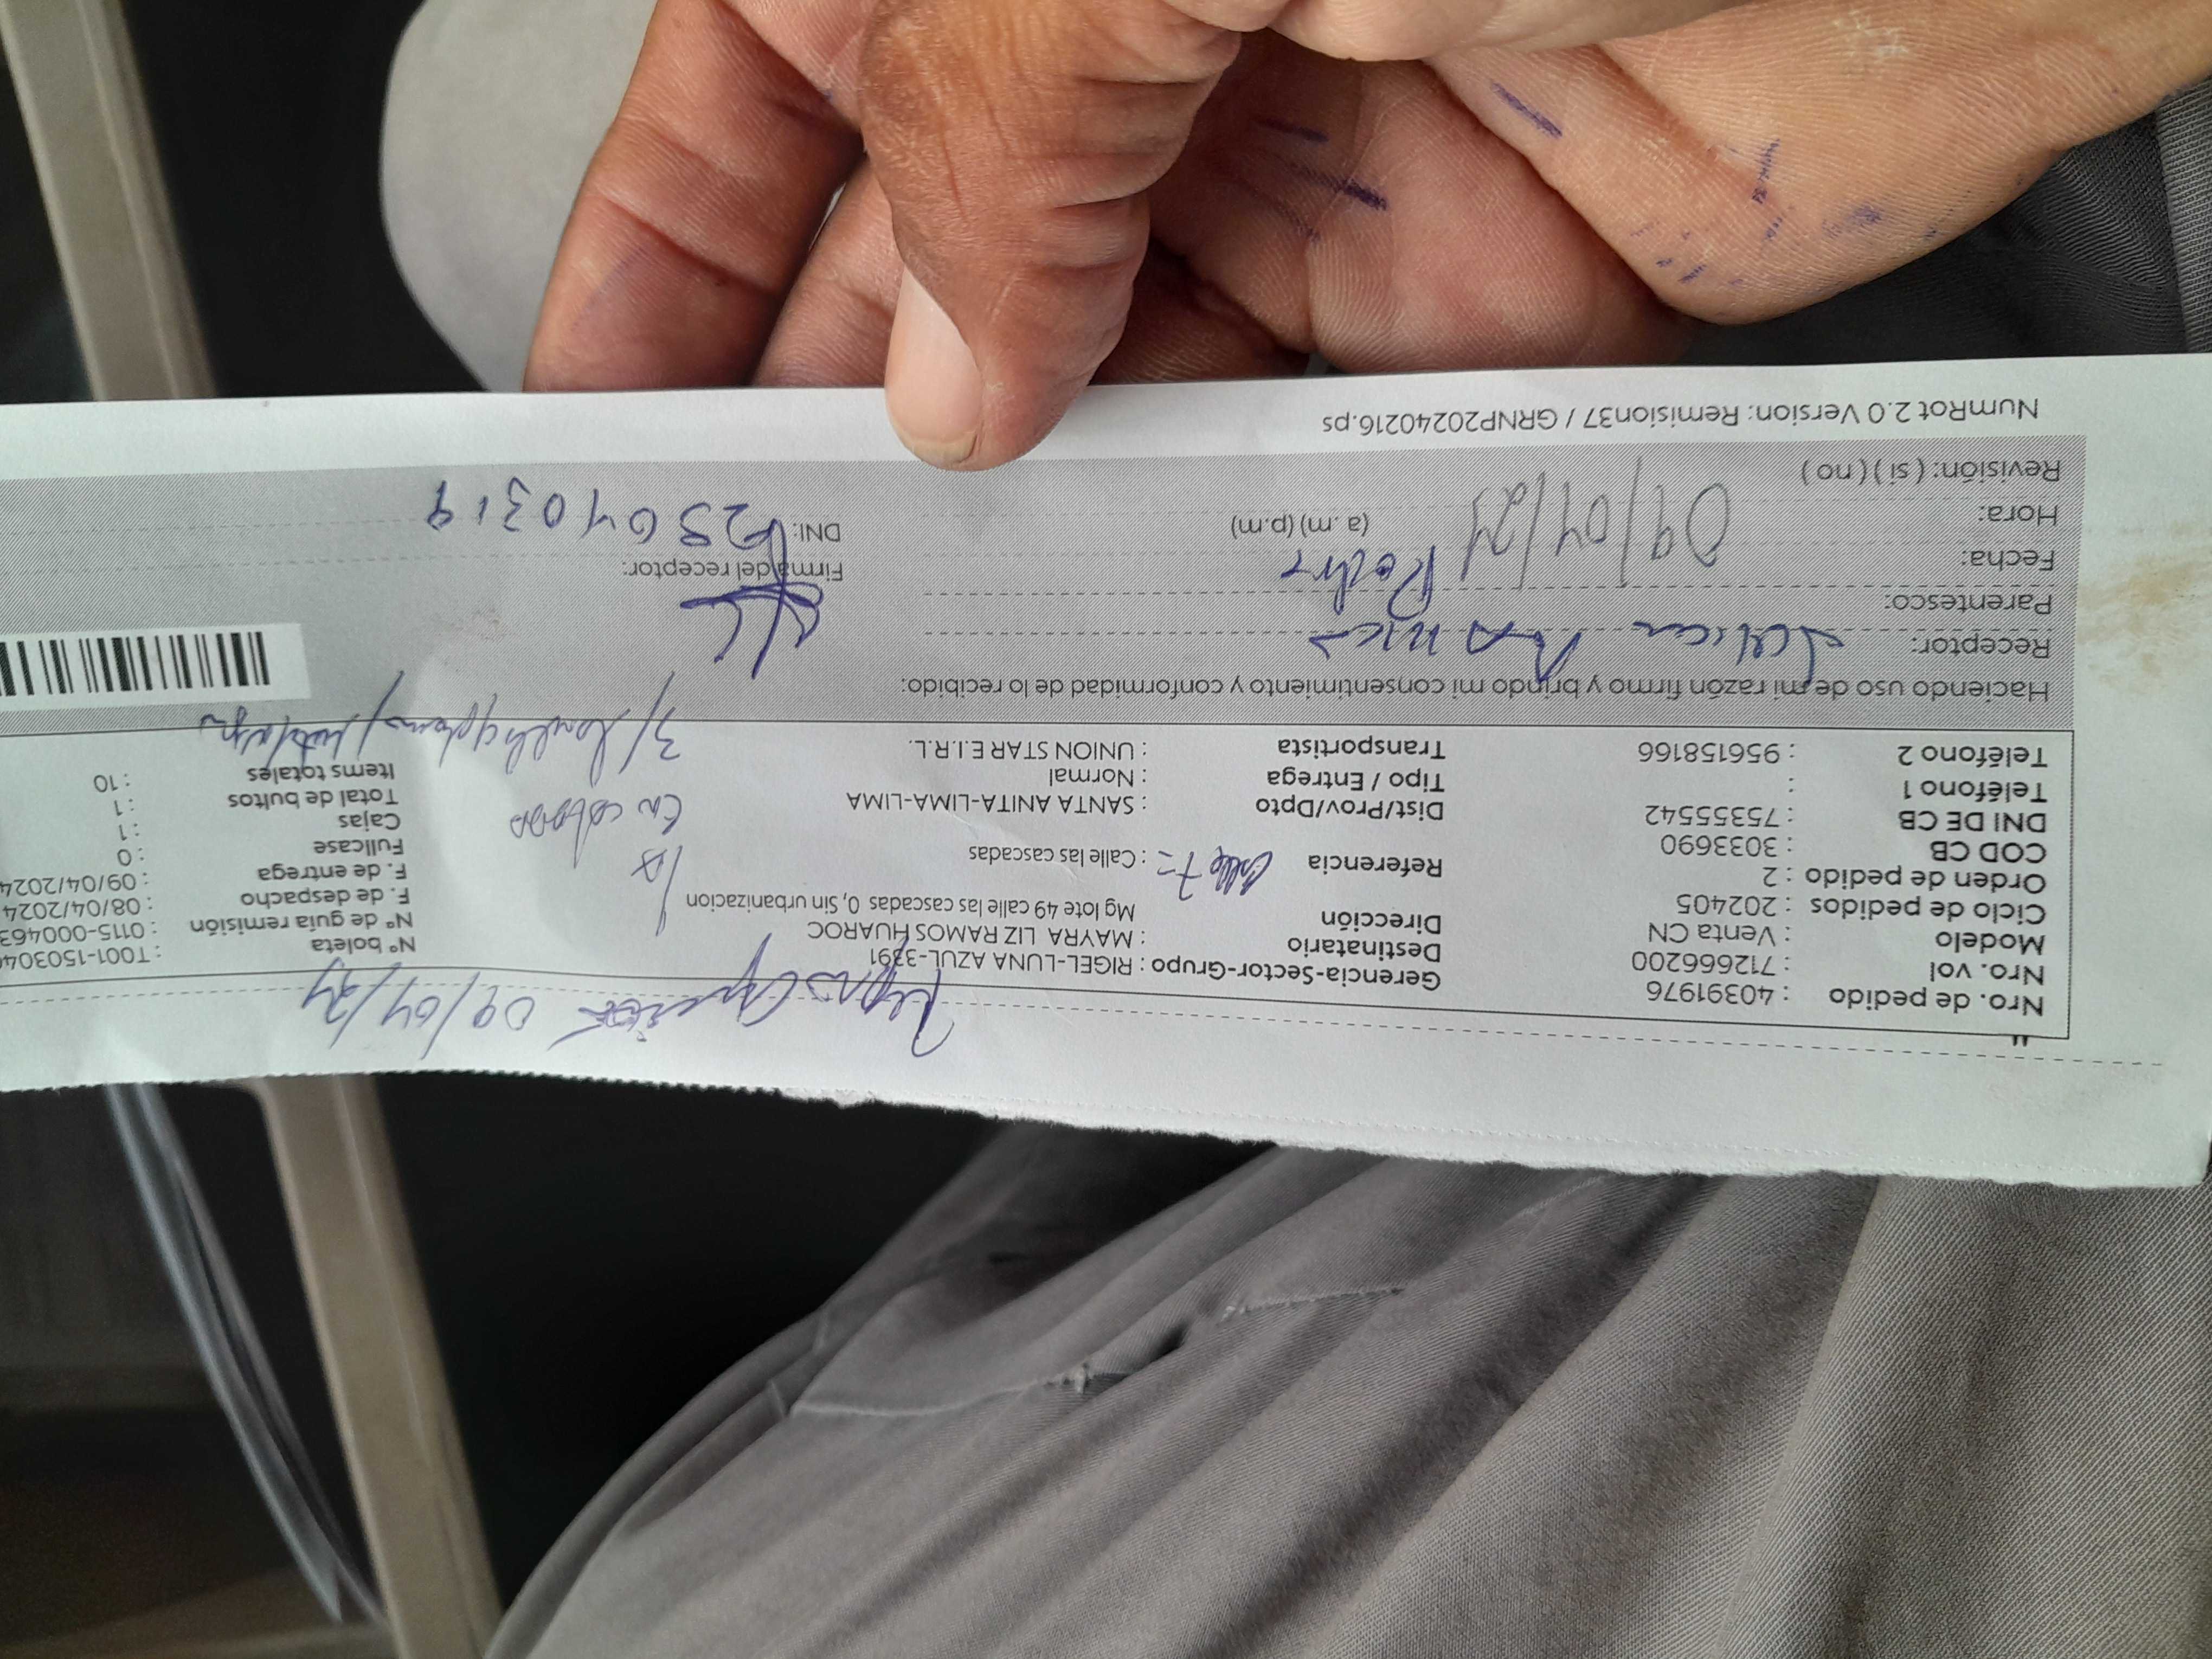 09/04/24
Nro. de pedido : 40391976
Nro. vol : 712666200
Modelo : Venta CN
Ciclo de pedidos : 202405
Orden de pedido : 2
COD CB : 3033690
DNI DE CB : 75355542
Teléfono 1 :
Teléfono 2 : 956158166
Gerencia-Sector-Grupo : RIGEL-LUNA AZUL-3391
Destinatario : MAYRA LIZ RAMOS HUAROC
Dirección Mg lote 49 calle las cascadas 0, Sin urbanizacion
Referencia : Calle las cascadas
Dist/Prov/Dpto : SANTA ANITA-LIMA-LIMA
Tipo / Entrega : Normal
Transportista : UNION STAR E.I.R.L.
N° boleta : T001-150304
N° de guía remisión : 0115-000463
F. de despacho : 08/04/2024
F. de entrega : 09/04/2024
Fullcase : 0
Cajas : 1
Total de bultos : 1
Items totales : 10
Haciendo uso de mi razón firmo y brindo mi consentimiento y conformidad de lo recibido:
Receptor:
Parentesco:
Fecha: 09/04/24
Hora: (a.m) (p.m)
Revisión: ( si ) ( no )
Firma del receptor:
DNI:
NumRot 2.0 Version: Remision37 / GRNP20240216.ps